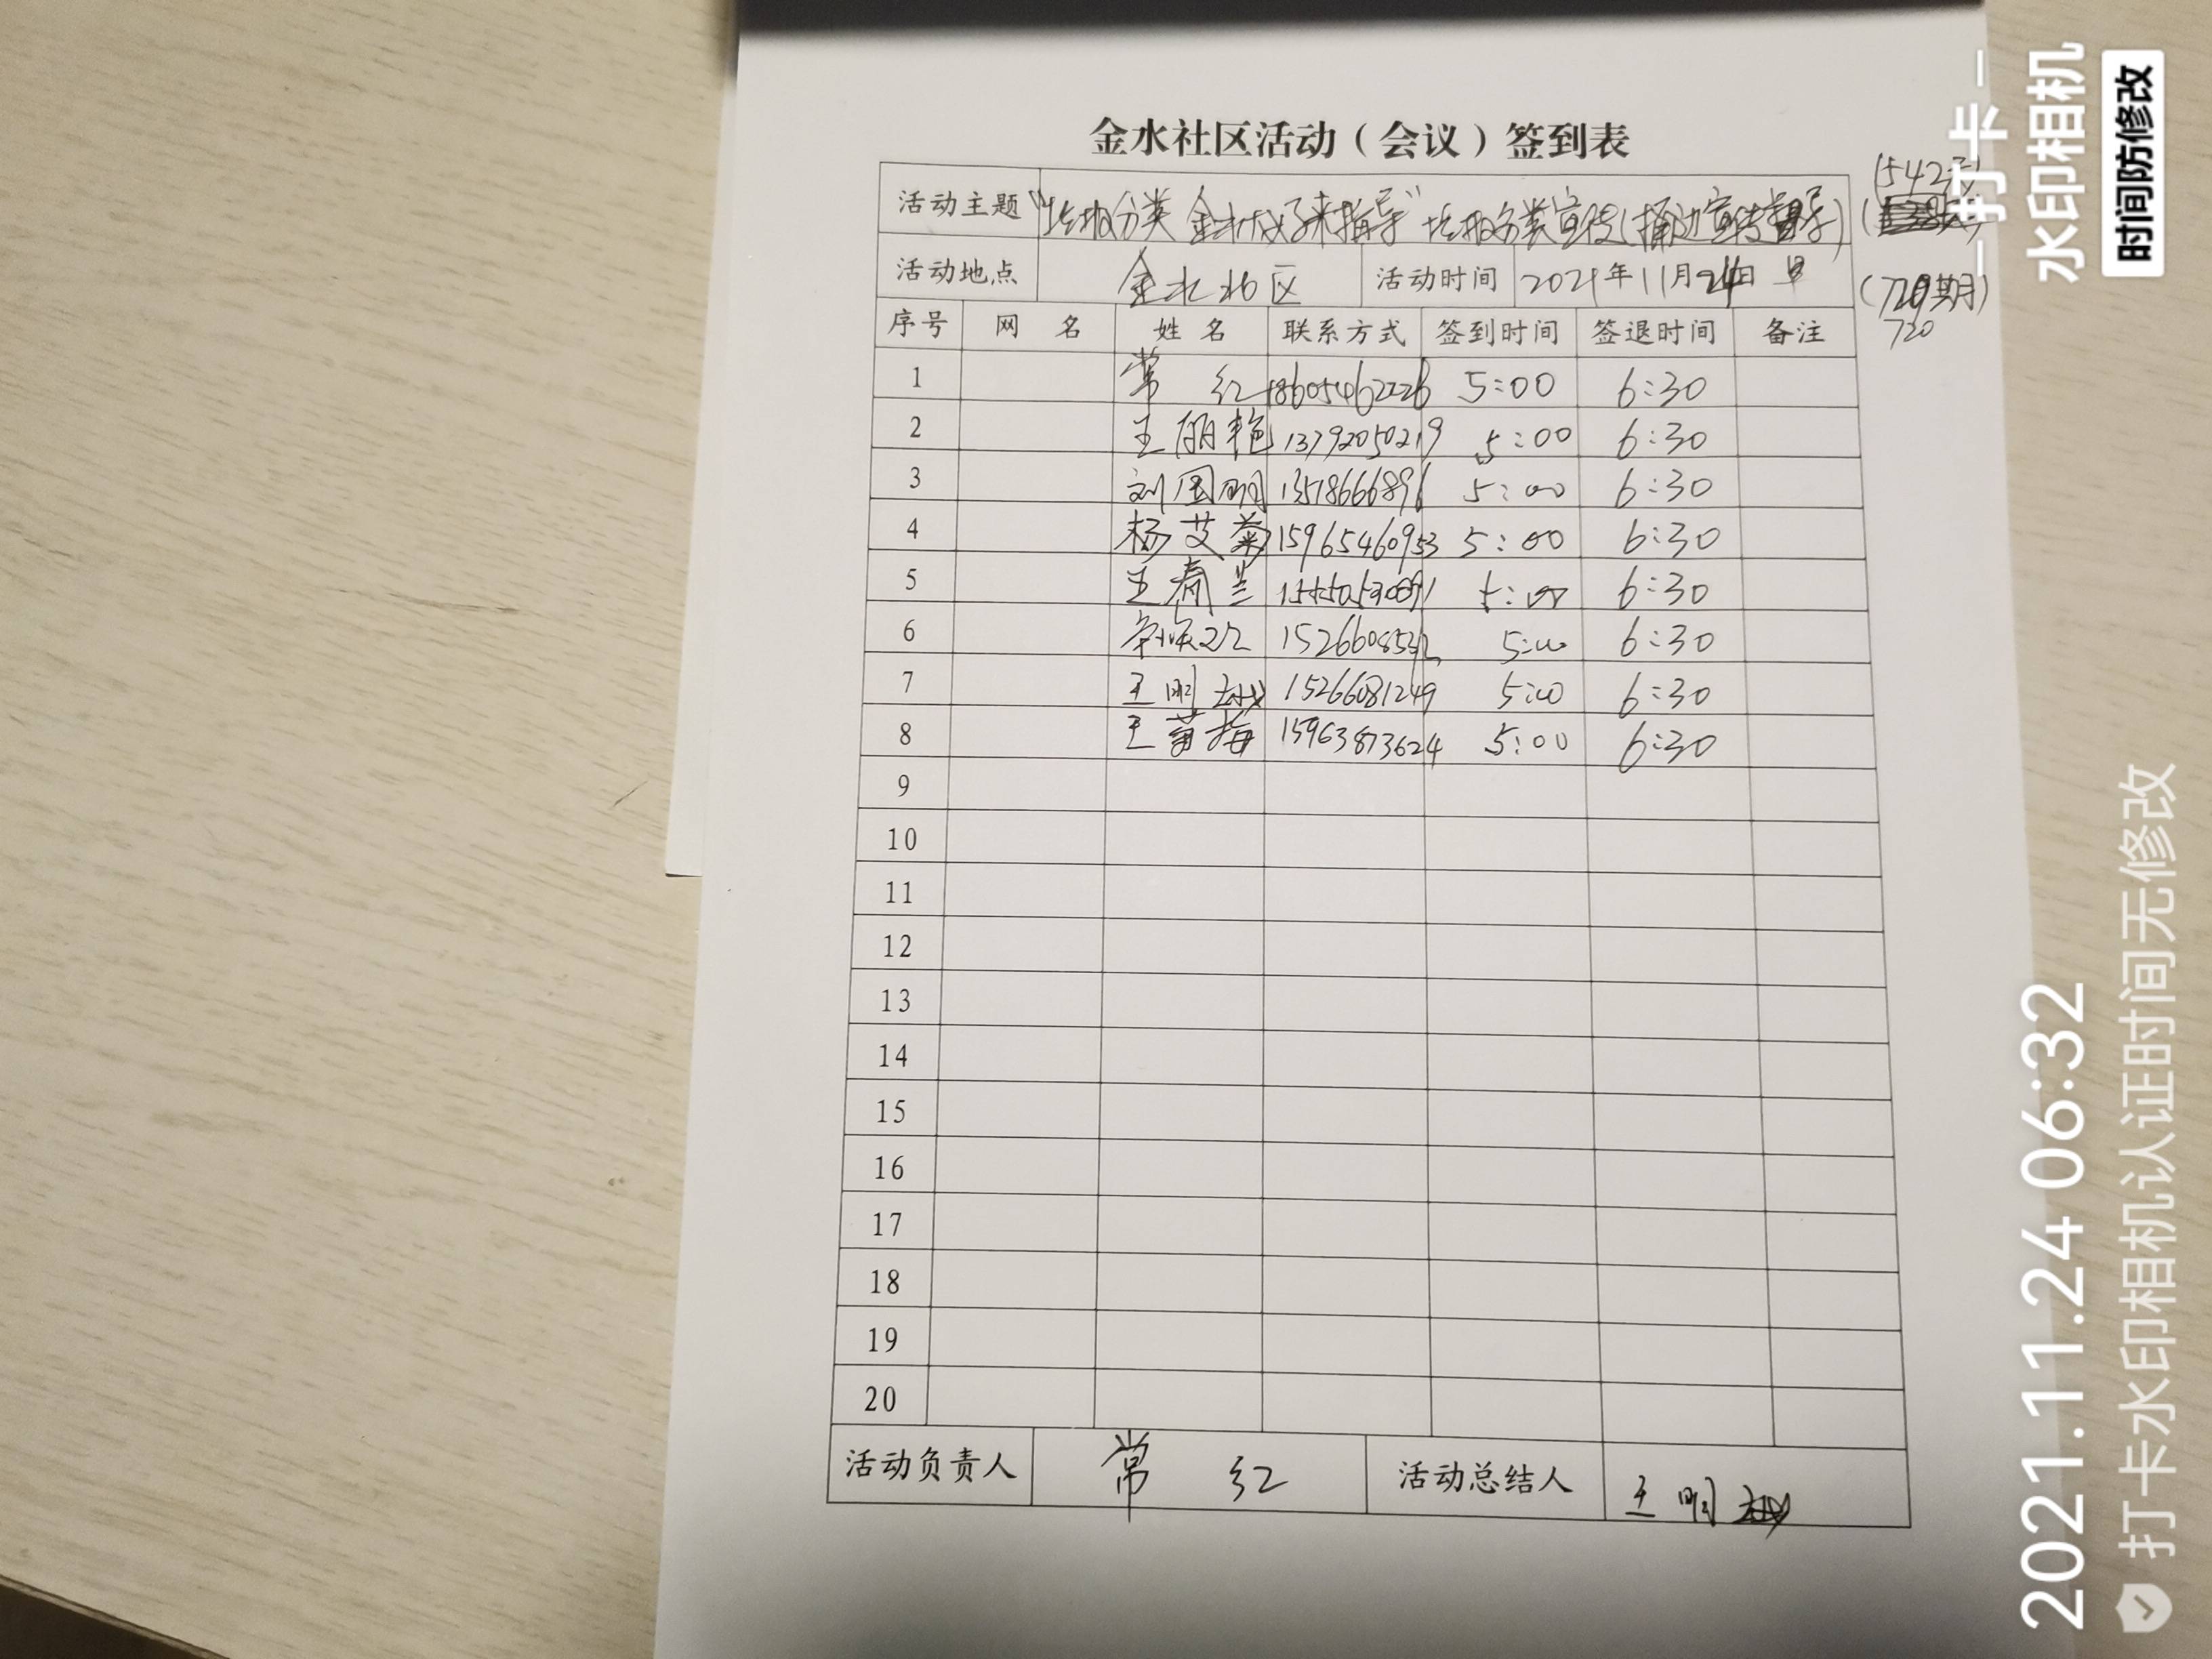 金水社区活动（会议）签到表
活动主题 "垃圾分类 金水友好来指导" 垃圾分类宣传(桶边宣传督导)
(542次)
活动地点 金水北区 活动时间 2021年11月24日 早
(720期)
720
序号 网 名 姓 名 联系方式 签到时间 签退时间 备注
1 常 红 18605462226 5:00 6:30
2 王丽艳 13792050219 5:00 6:30
3 刘国明 13518666896 5:00 6:30
4 杨艾菊 15965460953 5:00 6:30
5 王春兰 5:00 6:30
6 5:00 6:30
7 王明越 15266081249 5:00 6:30
8 王苗梅 15963873624 5:00 6:30
9
10
11
12
13
14
15
16
17
18
19
20
活动负责人 常 红 活动总结人 王明越
打卡
水印相机
时间防修改
2021.11.24 06:32
打卡水印相机认证时间无修改